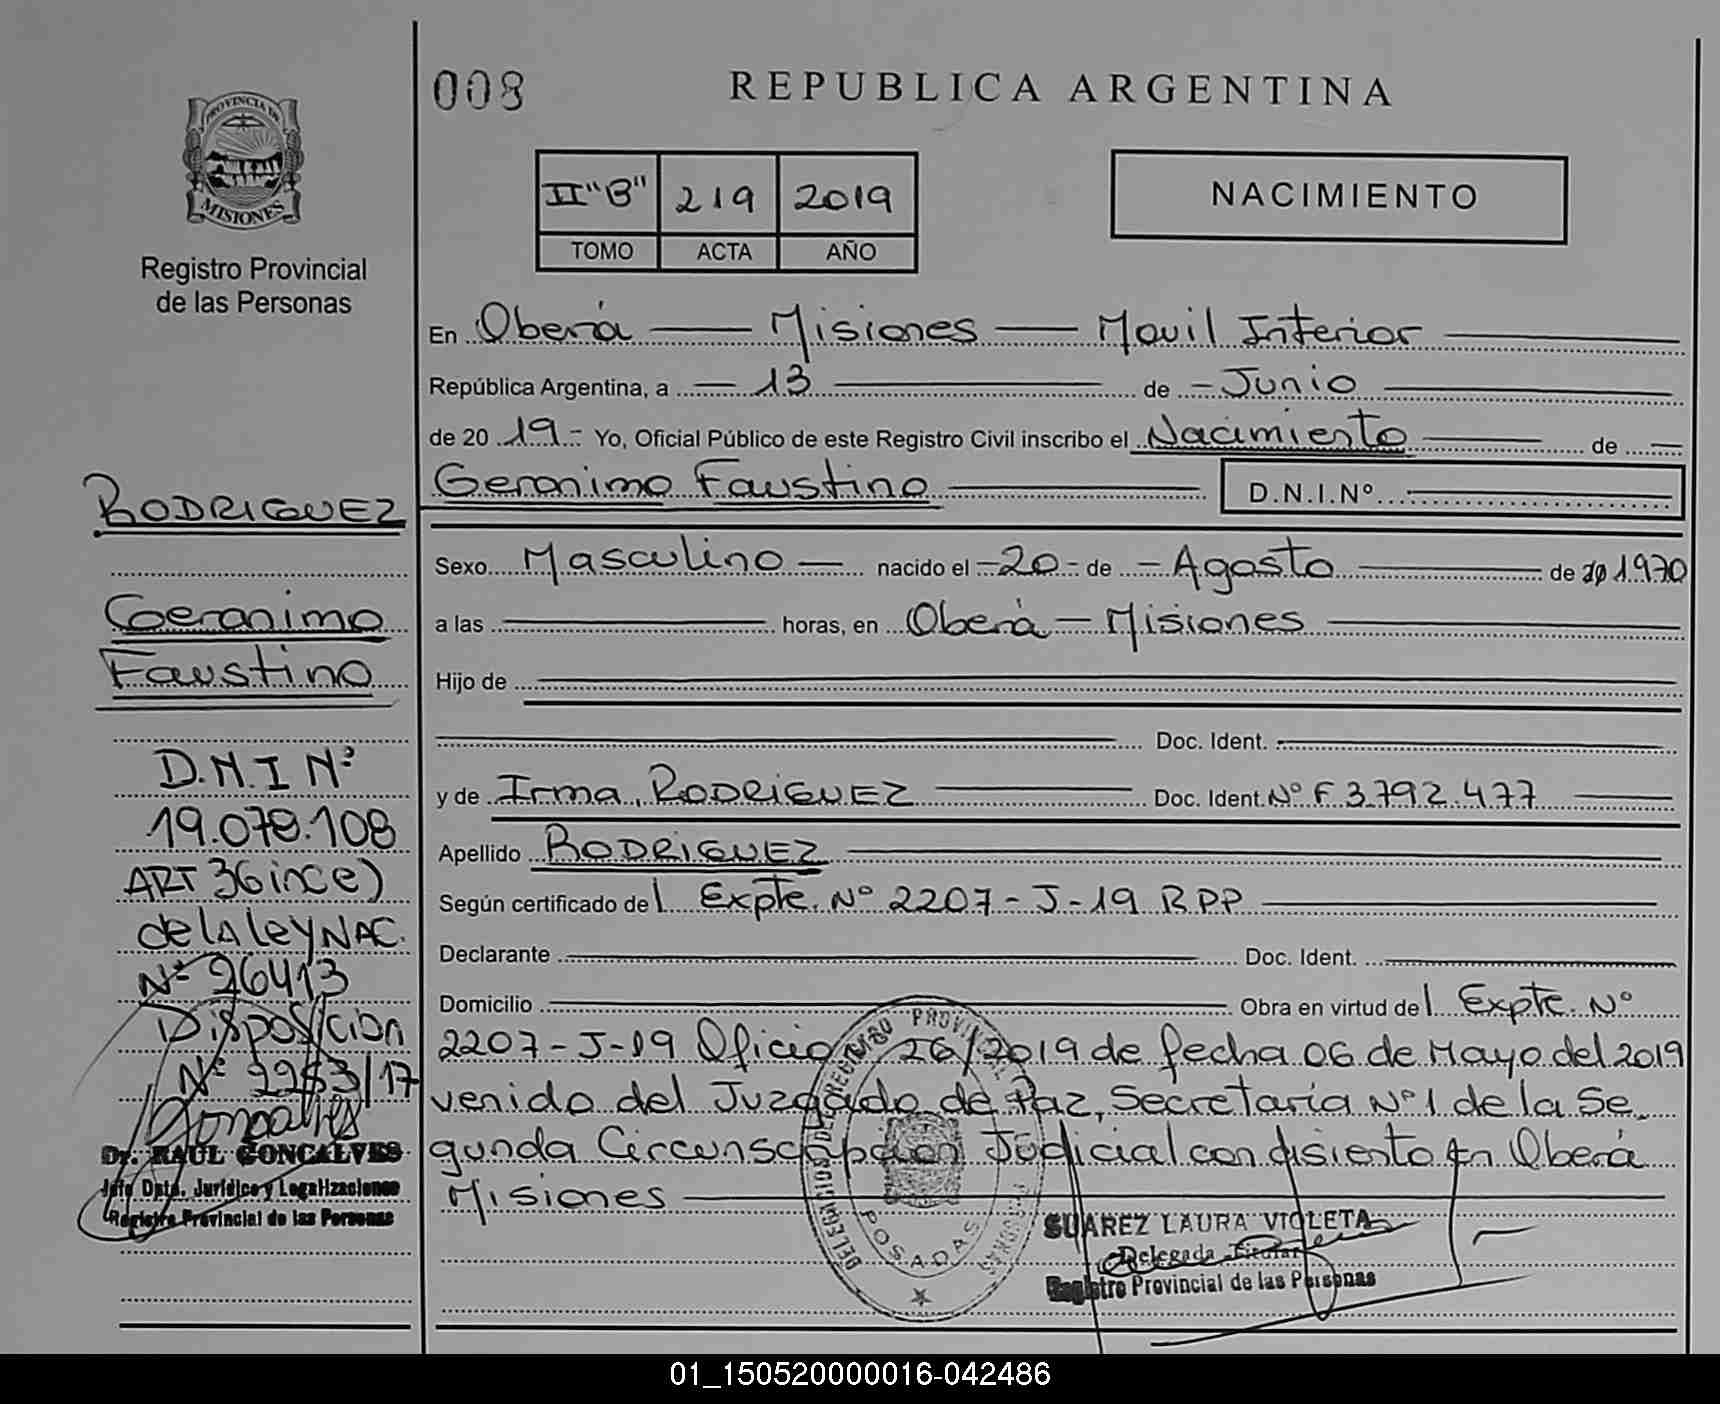 008
REPUBLICA ARGENTINA
PROVINCIA DE
MISIONES
Registro Provincial
de las Personas
II "B" 219 2019
TOMO ACTA AÑO
NACIMIENTO
En Oberá — Misiones — Movil Interior
República Argentina, a — 13 — de - Junio
de 20 19.- Yo, Oficial Público de este Registro Civil inscribo el Nacimiento de
Geronimo Faustino D.N.I.Nº
Sexo Masculino — nacido el - 20 - de - Agosto — de 1970
a las — horas, en Oberá — Misiones
Hijo de
Doc. Ident.
y de Irma, RODRIGUEZ Doc. Ident Nº F 3.792.477
Apellido RODRIGUEZ
Según certificado del Expte. Nº 2207 - J - 19 RPP
Declarante Doc. Ident.
Domicilio Obra en virtud del Expte. Nº
2207 - J - 19 Oficio Nº 26/2019 de fecha 06 de Mayo del 2019
venido del Juzgado de Paz, Secretaría Nº 1 de la Se-
gunda Circunscripcion Judicial con asiento en Oberá
Misiones
RODRIGUEZ
Geronimo
Faustino
D.N.I Nº
19.078.108
ART 36 inc e)
de lA ley NAC.
Nº 26413
Disposicion
Nº 2253/17
Goncalves
Dr. RAUL GONCALVES
Jefe Dpto. Jurídico y Legalizaciones
Registro Provincial de las Personas
POSADAS
SUAREZ LAURA VIOLETA
Delegada Titular
Registro Provincial de las Personas
01_150520000016-042486